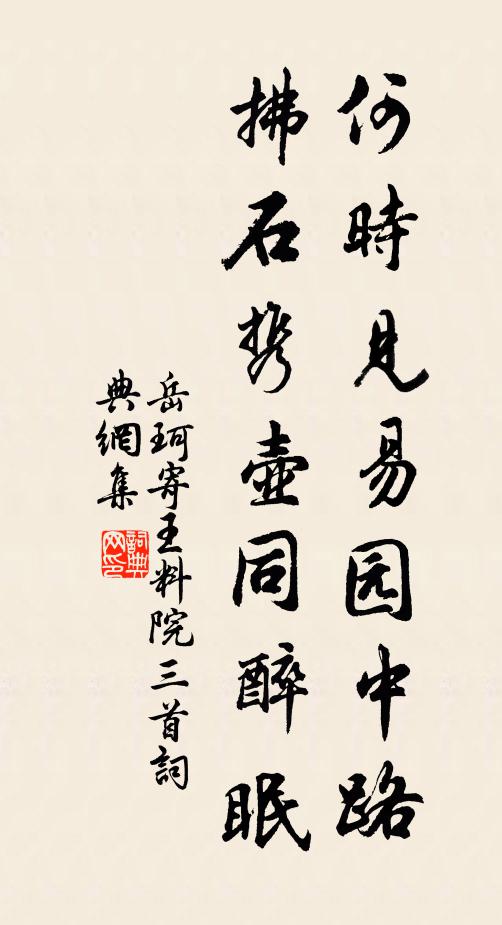 何時見易园中路
拂石携壺同醉眠
岳珂寄王料院三首詞
典網集
詞典
网印